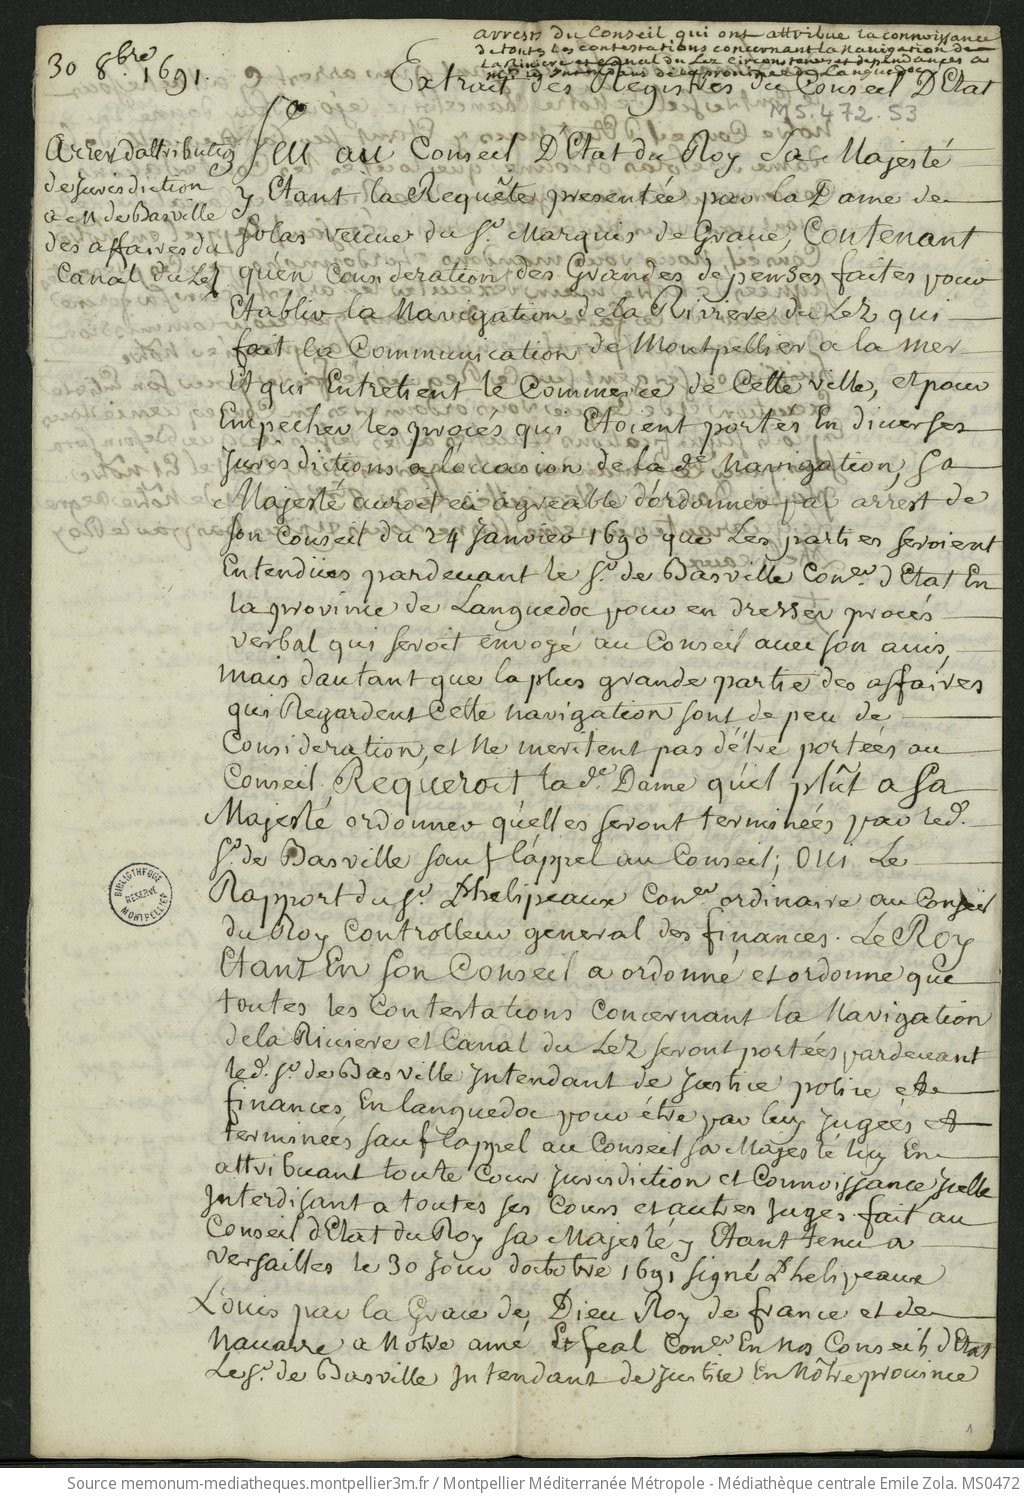 arrests du Conseil qui ont attribue la connoissance
de toutes les contestations concernant la navigation de
la Riviere et Canal du Lez circonstances et dependances a
Mrs les Intendans de la province de Languedoc
30 8bre 1691.
Extrait des Registres du Conseil D'Etat
MS.472.53
Arrest d'attribution
de jurisdiction
a M de Basville
des affaires du
Canal du Lez
Veu au Conseil D'Etat du Roy Sa Majesté
y Etant la Requête presentée par la Dame de
Solas veuve du Sr. Marquis de Grave, Contenant
qu'en Consideration des Grandes depenses faites pour
Etablir la Navigation de la Riviere du Lez qui
fait la Communication de Montpellier a la mer
Et qui Entretient le Commerce de Cette ville, et pour
Empecher les procés qui Etoient portés En diverses
Jurisdictions a l'occasion de la de. navigation, Sa
Majesté auroit eü agreable d'ordonner par arrest de
son Conseil du 24 Janvier 1690 que Les parties seroient
Entendües pardevant le Sr. de Basville Coner. d'Etat En
la province de Languedoc pour en dresser procés
verbal qui seroit envoyé au Conseil avec son avis,
mais dautant que la plus grande partie des affaires
qui Regardent Cette navigation sont de peu de
Consideration, et ne meritent pas d'étre portées au
Conseil. Requeroit la de. Dame qu'il plût a Sa
Majesté ordonner qu'elles seront terminées par led.
Sr. de Basville sauf l'appel au Conseil; Oui Le
Rapport du Sr. Phelipeaux Coner. ordinaire au Conseil
du Roy Controlleur general des finances. Le Roy
Etant En son Conseil a ordonné et ordonne que
toutes les Contestations Concernant la Navigation
de la Riviere et Canal du Lez seront portées pardevant
led. Sr. de Basville Jntendant de justice police et
finances En languedoc pour étre par luy jugées et
terminées sauf l'appel au Conseil sa Majesté luy En
attribuant toute Cour jurisdiction et Connoissance jcelle
Jnterdisant a toutes ses Cours et autres juges. fait au
Conseil d'Etat du Roy sa Majesté y Etant tenu a
Versailles le 30 jour d'octobre 1691 signé Phelipeaux
Louis par la Grace de Dieu Roy de france et de
Navarre a Nôtre amé Et feal Coner. En nos Conseils d'Etat
Le Sr. de Basville Jntendant de justice En Nôtre province
BIBLIOTHEQUE
RESERVE
MONTPELLIER
1
Source memonum-mediatheques.montpellier3m.fr / Montpellier Méditerranée Métropole - Médiathèque centrale Emile Zola. MS0472